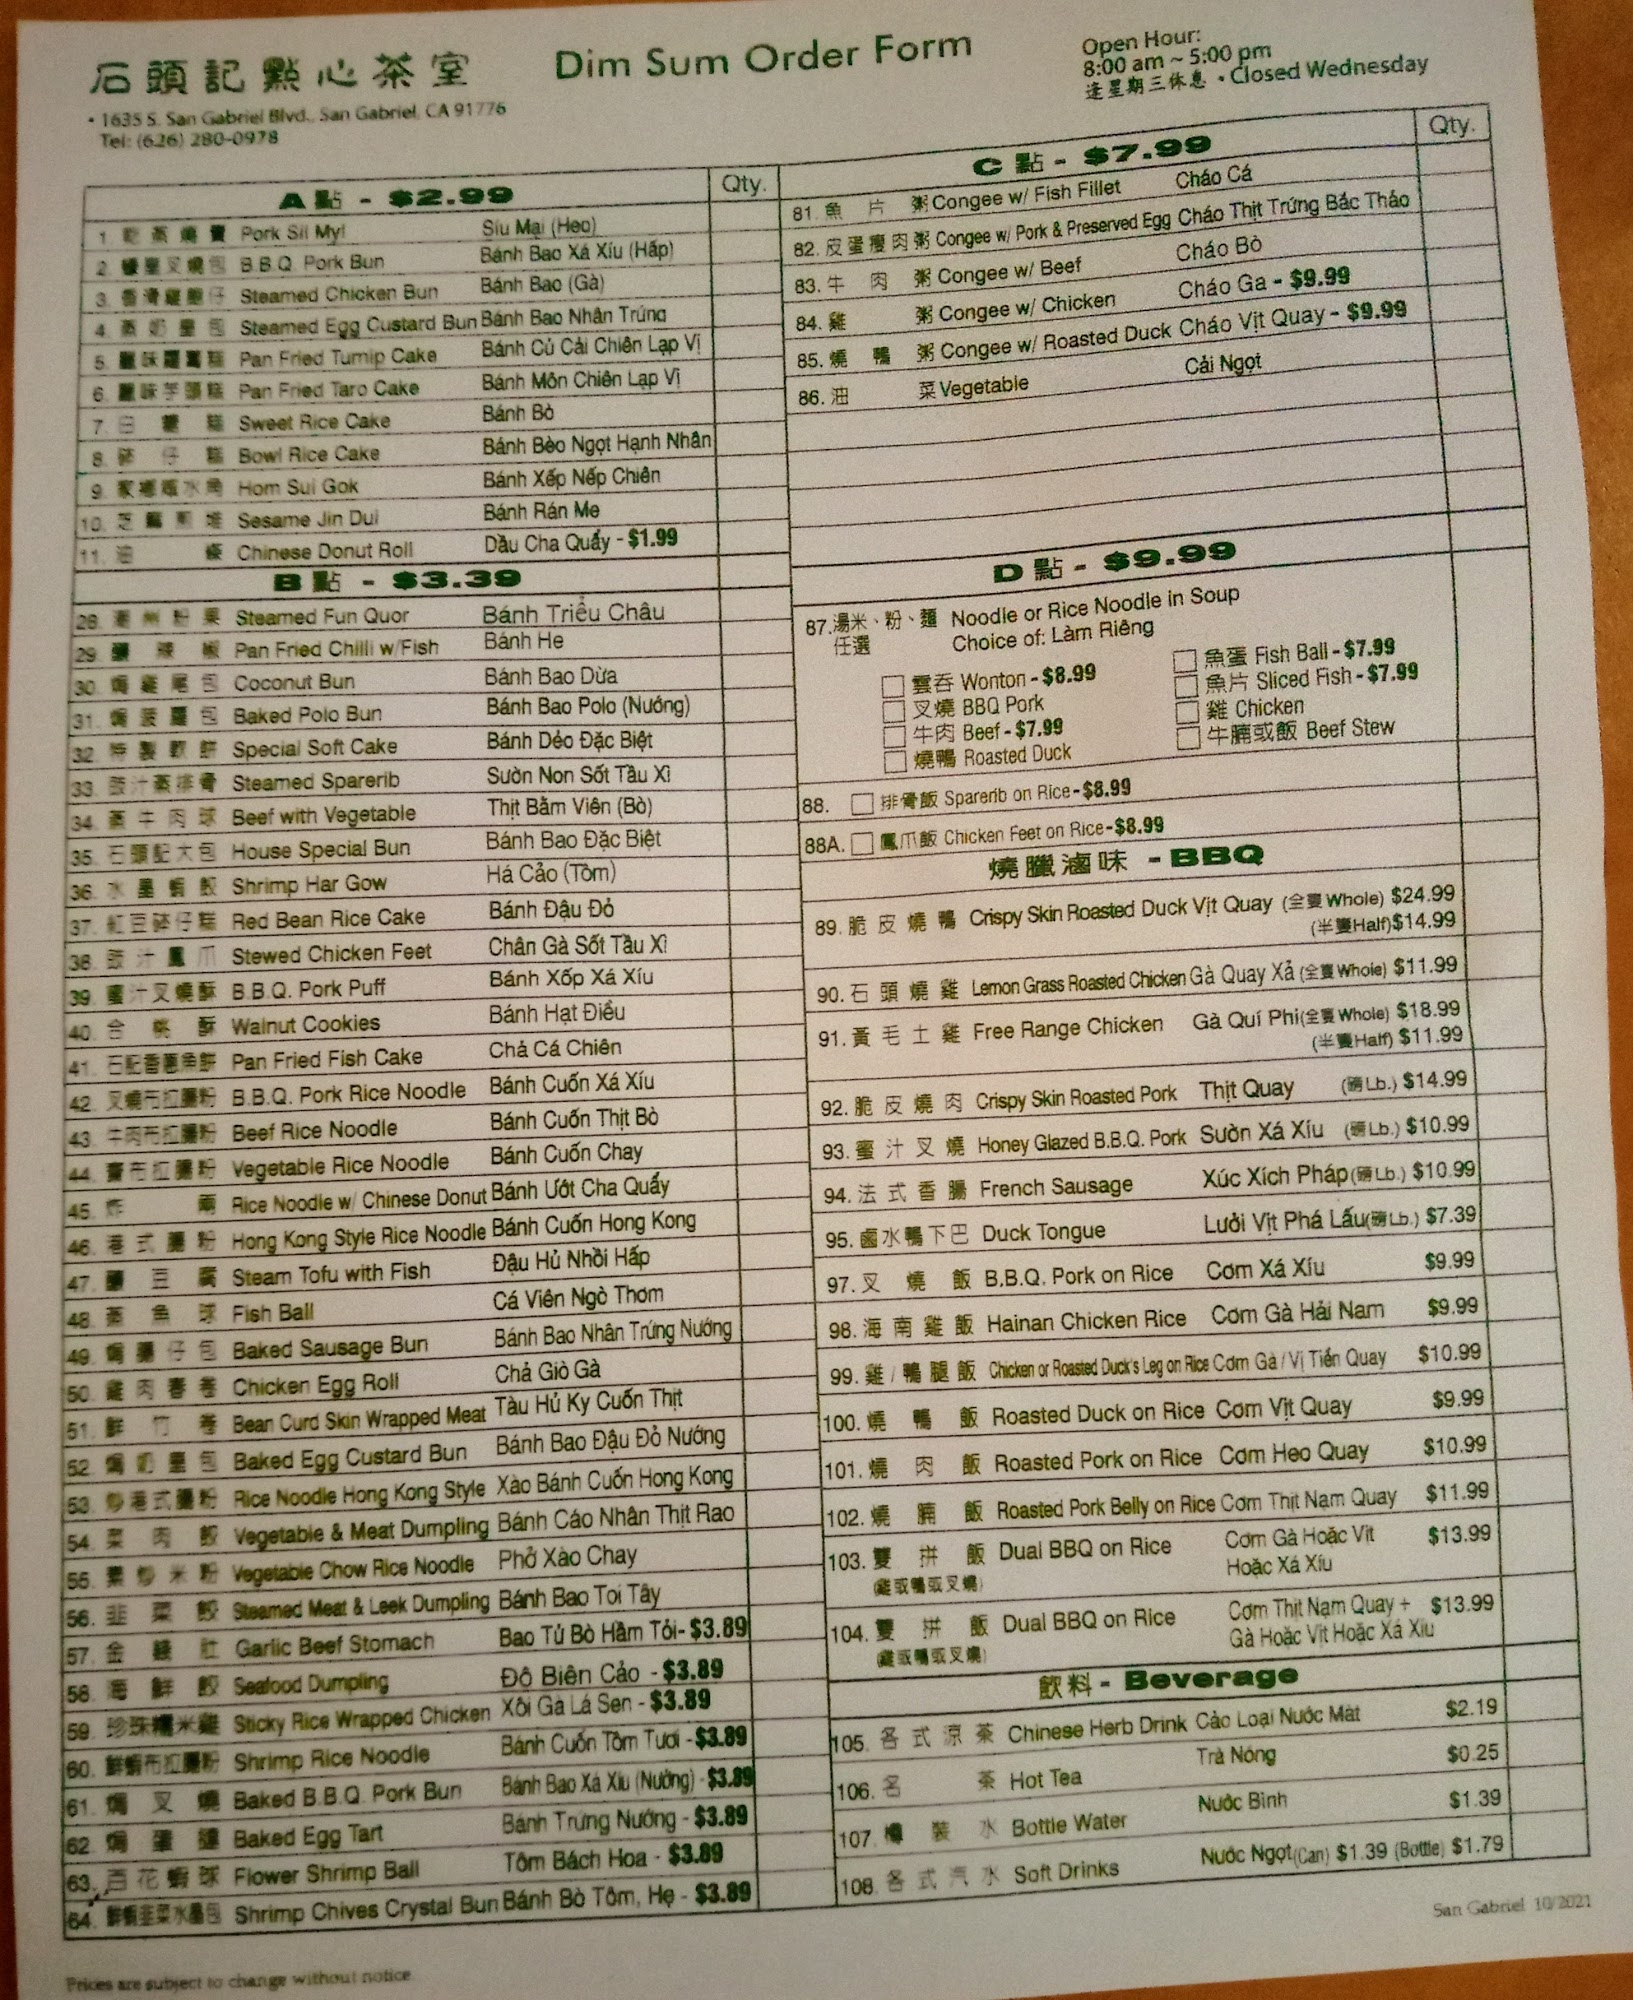 石頭記點心茶室
Dim Sum Order Form
Open Hour:
8:00 am ~ 5:00 pm
逢星期三休息 • Closed Wednesday
• 1635 S. San Gabriel Blvd., San Gabriel, CA 91776
Tel: (626) 280-0978
A 點 - $2.99 Qty.
1. 乾蒸燒賣 Pork Sil Myl Síu Mại (Heo)
2. 叉燒包 B.B.Q. Pork Bun Bánh Bao Xá Xíu (Hấp)
3. 香滑雞飽仔 Steamed Chicken Bun Bánh Bao (Gà)
4. 蒸奶皇包 Steamed Egg Custard Bun Bánh Bao Nhân Trứng
5. 臘味蘿蔔糕 Pan Fried Turnip Cake Bánh Củ Cải Chiên Lạp Vị
6. 臘味芋頭糕 Pan Fried Taro Cake Bánh Môn Chiên Lạp Vị
7. 白糖糕 Sweet Rice Cake Bánh Bò
8. 砵仔糕 Bowl Rice Cake Bánh Bèo Ngọt Hạnh Nhân
9. 家鄉咸水角 Hom Sui Gok Bánh Xếp Nếp Chiên
10. 芝麻煎堆 Sesame Jin Dui Bánh Rán Me
11. 油條 Chinese Donut Roll Dầu Cha Quẩy - $1.99
B 點 - $3.39
28. 潮州粉果 Steamed Fun Quor Bánh Triểu Châu
29. 釀辣椒 Pan Fried Chilli w/Fish Bánh He
30. 焗雞尾包 Coconut Bun Bánh Bao Dừa
31. 焗菠蘿包 Baked Polo Bun Bánh Bao Polo (Nướng)
32. 特製軟餅 Special Soft Cake Bánh Dẻo Đặc Biệt
33. 豉汁蒸排骨 Steamed Sparerib Sườn Non Sốt Tầu Xì
34. 蒸牛肉球 Beef with Vegetable Thịt Bằm Viên (Bò)
35. 石頭記大包 House Special Bun Bánh Bao Đặc Biệt
36. 水晶蝦餃 Shrimp Har Gow Há Cảo (Tôm)
37. 紅豆砵仔糕 Red Bean Rice Cake Bánh Đậu Đỏ
38. 豉汁鳳爪 Stewed Chicken Feet Chân Gà Sốt Tầu Xì
39. 蜜汁叉燒酥 B.B.Q. Pork Puff Bánh Xốp Xá Xíu
40. 合桃酥 Walnut Cookies Bánh Hạt Điều
41. 石記香蔥魚餅 Pan Fried Fish Cake Chả Cá Chiên
42. 叉燒布拉腸粉 B.B.Q. Pork Rice Noodle Bánh Cuốn Xá Xíu
43. 牛肉布拉腸粉 Beef Rice Noodle Bánh Cuốn Thịt Bò
44. 齋布拉腸粉 Vegetable Rice Noodle Bánh Cuốn Chay
45. 炸兩 Rice Noodle w/ Chinese Donut Bánh Ướt Cha Quẩy
46. 港式腸粉 Hong Kong Style Rice Noodle Bánh Cuốn Hong Kong
47. 釀豆腐 Steam Tofu with Fish Đậu Hủ Nhồi Hấp
48. 蒸魚球 Fish Ball Cá Viên Ngò Thơm
49. 焗腸仔包 Baked Sausage Bun Bánh Bao Nhân Trứng Nướng
50. 雞肉春卷 Chicken Egg Roll Chả Giò Gà
51. 鮮竹卷 Bean Curd Skin Wrapped Meat Tàu Hủ Ky Cuốn Thịt
52. 焗奶皇包 Baked Egg Custard Bun Bánh Bao Đậu Đỏ Nướng
53. 炒港式腸粉 Rice Noodle Hong Kong Style Xào Bánh Cuốn Hong Kong
54. 菜肉餃 Vegetable & Meat Dumpling Bánh Cáo Nhân Thịt Rao
55. 素炒米粉 Vegetable Chow Rice Noodle Phở Xào Chay
56. 韭菜餃 Steamed Meat & Leek Dumpling Bánh Bao Toi Tây
57. 金錢肚 Garlic Beef Stomach Bao Tử Bò Hầm Tỏi- $3.89
58. 海鮮餃 Seafood Dumpling Đồ Biên Cảo - $3.89
59. 珍珠糯米雞 Sticky Rice Wrapped Chicken Xôi Gà Lá Sen - $3.89
60. 鮮蝦布拉腸粉 Shrimp Rice Noodle Bánh Cuốn Tôm Tươi - $3.89
61. 焗叉燒 Baked B.B.Q. Pork Bun Bánh Bao Xá Xíu (Nướng) - $3.89
62. 焗蛋撻 Baked Egg Tart Bánh Trứng Nướng - $3.89
63. 百花蝦球 Flower Shrimp Ball Tôm Bách Hoa - $3.89
64. 鮮蝦韭菜水晶包 Shrimp Chives Crystal Bun Bánh Bò Tôm, Hẹ - $3.89
C 點 - $7.99 Qty.
81. 魚片粥 Congee w/ Fish Fillet Cháo Cá
82. 皮蛋瘦肉粥 Congee w/ Pork & Preserved Egg Cháo Thịt Trứng Bắc Thảo
83. 牛肉粥 Congee w/ Beef Cháo Bò
84. 雞粥 Congee w/ Chicken Cháo Ga - $9.99
85. 燒鴨粥 Congee w/ Roasted Duck Cháo Vịt Quay - $9.99
86. 油菜 Vegetable Cải Ngọt
D 點 - $9.99
87. 湯米、粉、麵 Noodle or Rice Noodle in Soup
任選 Choice of: Làm Riêng
魚蛋 Fish Ball - $7.99
雲吞 Wonton - $8.99 魚片 Sliced Fish - $7.99
叉燒 BBQ Pork 雞 Chicken
牛肉 Beef - $7.99 牛腩或飯 Beef Stew
燒鴨 Roasted Duck
88. 排骨飯 Sparerib on Rice - $8.99
88A. 鳳爪飯 Chicken Feet on Rice - $8.99
燒臘滷味 - BBQ
89. 脆皮燒鴨 Crispy Skin Roasted Duck Vịt Quay (全隻 Whole) $24.99
(半隻 Half) $14.99
90. 石頭燒雞 Lemon Grass Roasted Chicken Gà Quay Xả (全隻 Whole) $11.99
91. 黃毛土雞 Free Range Chicken Gà Quí Phi (全隻 Whole) $18.99
(半隻 Half) $11.99
92. 脆皮燒肉 Crispy Skin Roasted Pork Thịt Quay (磅 Lb.) $14.99
93. 蜜汁叉燒 Honey Glazed B.B.Q. Pork Sườn Xá Xíu (磅 Lb.) $10.99
94. 法式香腸 French Sausage Xúc Xích Pháp (磅 Lb.) $10.99
95. 鹵水鴨下巴 Duck Tongue Lưỡi Vịt Phá Lấu (磅 Lb.) $7.39
97. 叉燒飯 B.B.Q. Pork on Rice Cơm Xá Xíu $9.99
98. 海南雞飯 Hainan Chicken Rice Cơm Gà Hải Nam $9.99
99. 雞/鴨腿飯 Chicken or Roasted Duck's Leg on Rice Cơm Gà / Vị Tiền Quay $10.99
100. 燒鴨飯 Roasted Duck on Rice Cơm Vịt Quay $9.99
101. 燒肉飯 Roasted Pork on Rice Cơm Heo Quay $10.99
102. 燒腩飯 Roasted Pork Belly on Rice Cơm Thịt Nạm Quay $11.99
103. 雙拼飯 Dual BBQ on Rice Cơm Gà Hoặc Vịt $13.99
(雞或鴨或叉燒) Hoặc Xá Xíu
104. 雙拼飯 Dual BBQ on Rice Cơm Thịt Nạm Quay + $13.99
(雞或鴨或叉燒) Gà Hoặc Vịt Hoặc Xá Xíu
飲料 - Beverage
105. 各式涼茶 Chinese Herb Drink Cảo Loại Nước Mát $2.19
106. 名茶 Hot Tea Trà Nóng $0.25
107. 樽裝水 Bottle Water Nước Bình $1.39
108. 各式汽水 Soft Drinks Nước Ngọt (Can) $1.39 (Bottle) $1.79
San Gabriel 10/2021
Prices are subject to change without notice